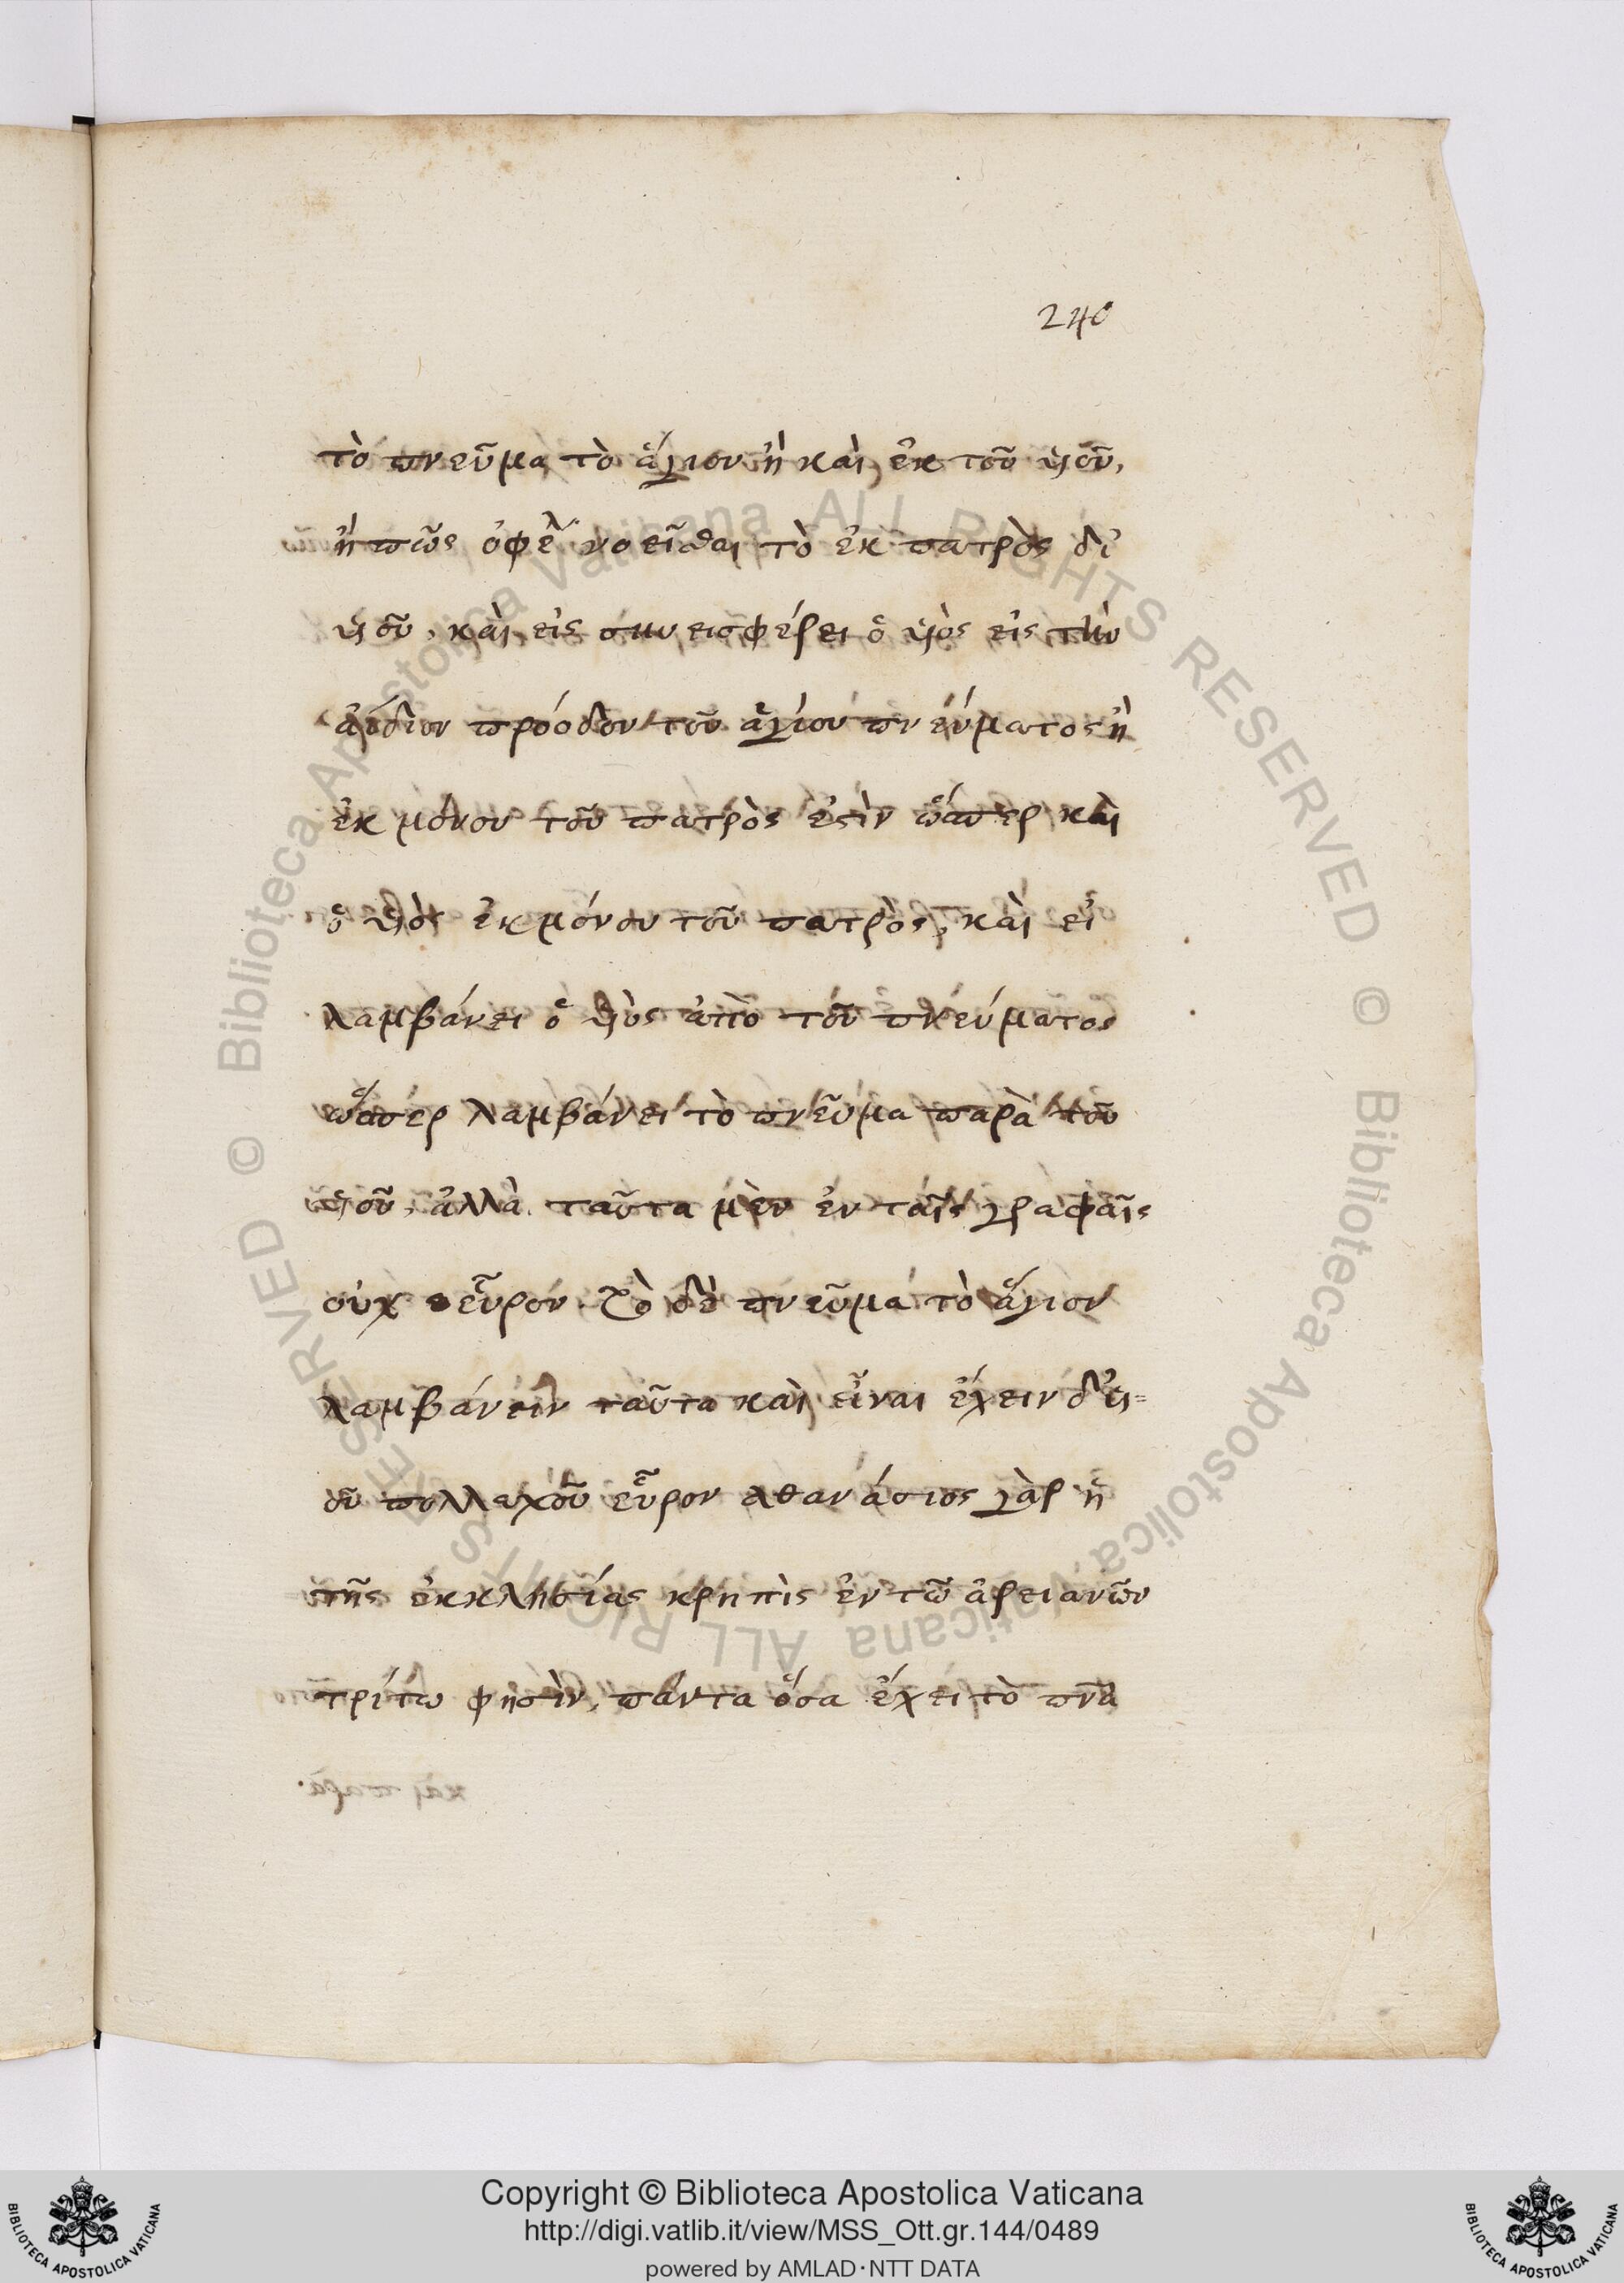 240
τὸ πνεῦμα τὸ ἅγιον ἢ καὶ ἐκ τοῦ υἱοῦ,
ἢ πῶς ὀφεί νοεῖσθαι τὸ ἐκ πατρὸς δι'
υἱοῦ, καὶ εἰς συνεισφέρει ὁ υἱὸς εἰς τὴν
ἀΐδιον πρόοδον τοῦ ἁγίου πνεύματος ἢ
ἐκ μόνου τοῦ πατρὸς ἐστὶν ὥσπερ καὶ
ὁ υἱὸς ἐκ μόνου τοῦ πατρὸς, καὶ εἰ
λαμβάνει ὁ υἱὸς ἀπὸ τοῦ πνεύματος
ὥσπερ λαμβάνει τὸ πνεῦμα παρὰ τοῦ
υἱοῦ, ἀλλὰ ταῦτα μὲν ἐν ταῖς γραφαῖς
οὐχ εὗρον. Τὸ δὲ πνεῦμα τὸ ἅγιον
λαμβάνειν ταῦτα καὶ εἶναι ἔχειν δι' υἱ=
οῦ πολλαχοῦ εὗρον αθανάσιος γὰρ ἡ
τῆς ἐκκλησίας κρηπὶς ἐν τῶ ἀρειανῶν
τρίτω φησὶν, πάντα ὅσα ἔχει τὸ πνα
Copyright © Biblioteca Apostolica Vaticana
http://digi.vatlib.it/view/MSS_Ott.gr.144/0489
powered by AMLAD·NTT DATA
BIBLIOTECA APOSTOLICA VATICANA
BIBLIOTECA APOSTOLICA VATICANA
© Biblioteca Apostolica Vaticana ALL RIGHTS RESERVED © Biblioteca Apostolica Vaticana ALL RIGHTS RESERVED